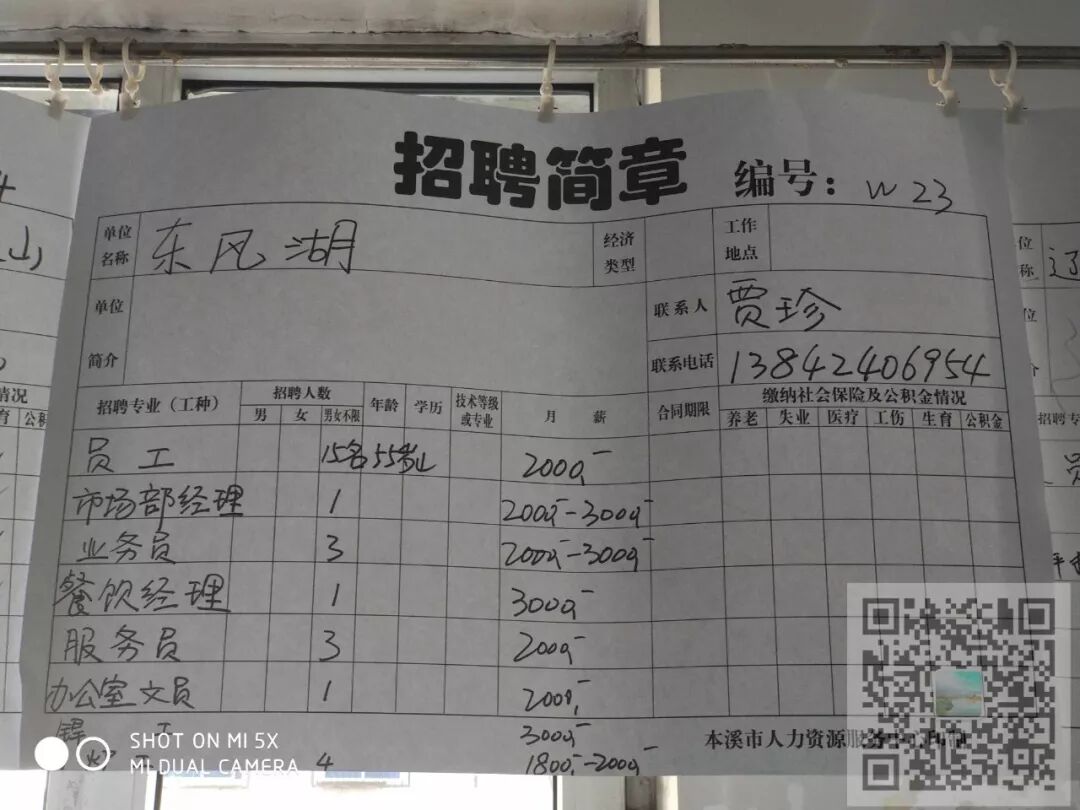 招聘简章 编号：W23
单位名称 东风湖 经济类型 工作地点
单位简介 联系人 贾珍
联系电话 13842406954
招聘专业（工种） 招聘人数 年龄 学历 技术等级或专业 月薪 合同期限 缴纳社会保险及公积金情况
男 女 男女不限 养老 失业 医疗 工伤 生育 公积金
员工 15名 55岁以 2000,-
市场部经理 1 2000,--3000,-
业务员 3 2000,--3000,-
餐饮经理 1 3000,-
服务员 3 2000,-
办公室文员 1 2000,-
工 3000,-
4 1800,--2000,-
本溪市人力资源服务中心印制
SHOT ON MI 5X
MI DUAL CAMERA